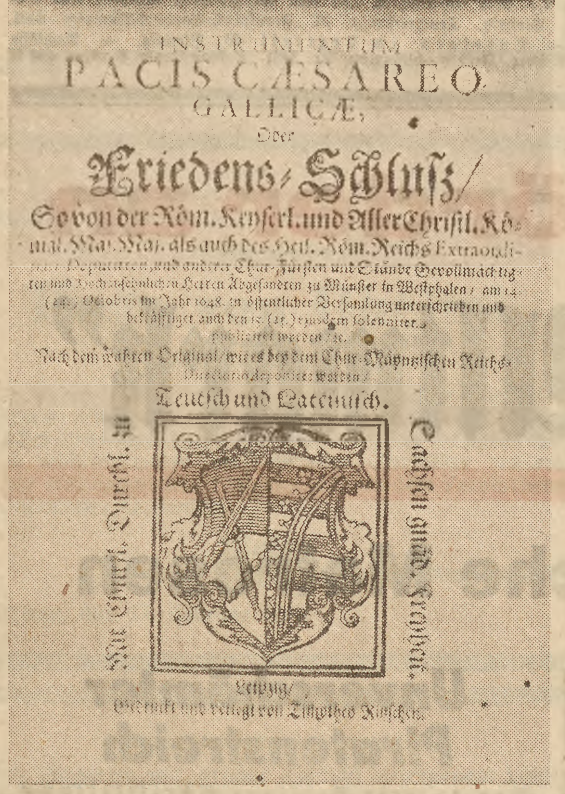 INSTRUMENTUM
PACIS CÆSAREO
GALLICÆ,
Oder
Friedens-Schluß/
So von der Röm. Keyserl. und Aller Christl. Kö-
nigl. Maj. Maj. als auch des Heil. Röm. Reichs Extraordi-
Deputirten, und anderer Chur-Fürsten und Stände Gevollmächtig-
ten und Hochansehnlichen Herren Abgesandten zu Münster in Westphalen / am 14.
(24.) Octobris im Jahr 1648. in öffentlicher Versamlung unterschrieben und
bekräfftiget auch den 15. (25.)
publiciret worden /
Nach dem wahren Original / wie es bey dem Chur-Mäyntzischen Reichs-
Directorio deponiret worden /
Teutsch und Lateinisch.
Mit Churfl. Durchl. zu
Sachsen gnäd. Freyheit.
Leipzig /
Gedruckt und verlegt von Timotheo Ritzschen.